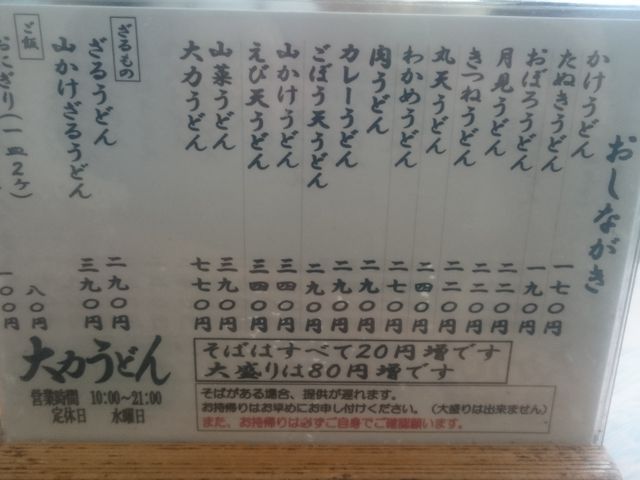 おしながき
かけうどん 一七〇円
たぬきうどん 一九〇円
おぼろうどん 二二〇円
月見うどん 二二〇円
きつねうどん 二二〇円
丸天うどん 二四〇円
わかめうどん 二七〇円
肉うどん 二九〇円
カレーうどん 二九〇円
ごぼう天うどん 二九〇円
山かけうどん 三四〇円
えび天うどん 三四〇円
山菜うどん 三九〇円
大力うどん 七七〇円
ざるもの
ざるうどん 二九〇円
山かけざるうどん 三九〇円
ご飯 八〇円
おにぎり(一皿2ケ) 一〇〇円
そばはすべて20円増です
大盛りは80円増です
そばがある場合、提供が遅れます。
お持帰りはお早めにお申し付けください。(大盛りは出来ません)
また、お持帰りは必ずご自身でご確認願います。
大力うどん
営業時間 10:00～21:00
定休日 水曜日